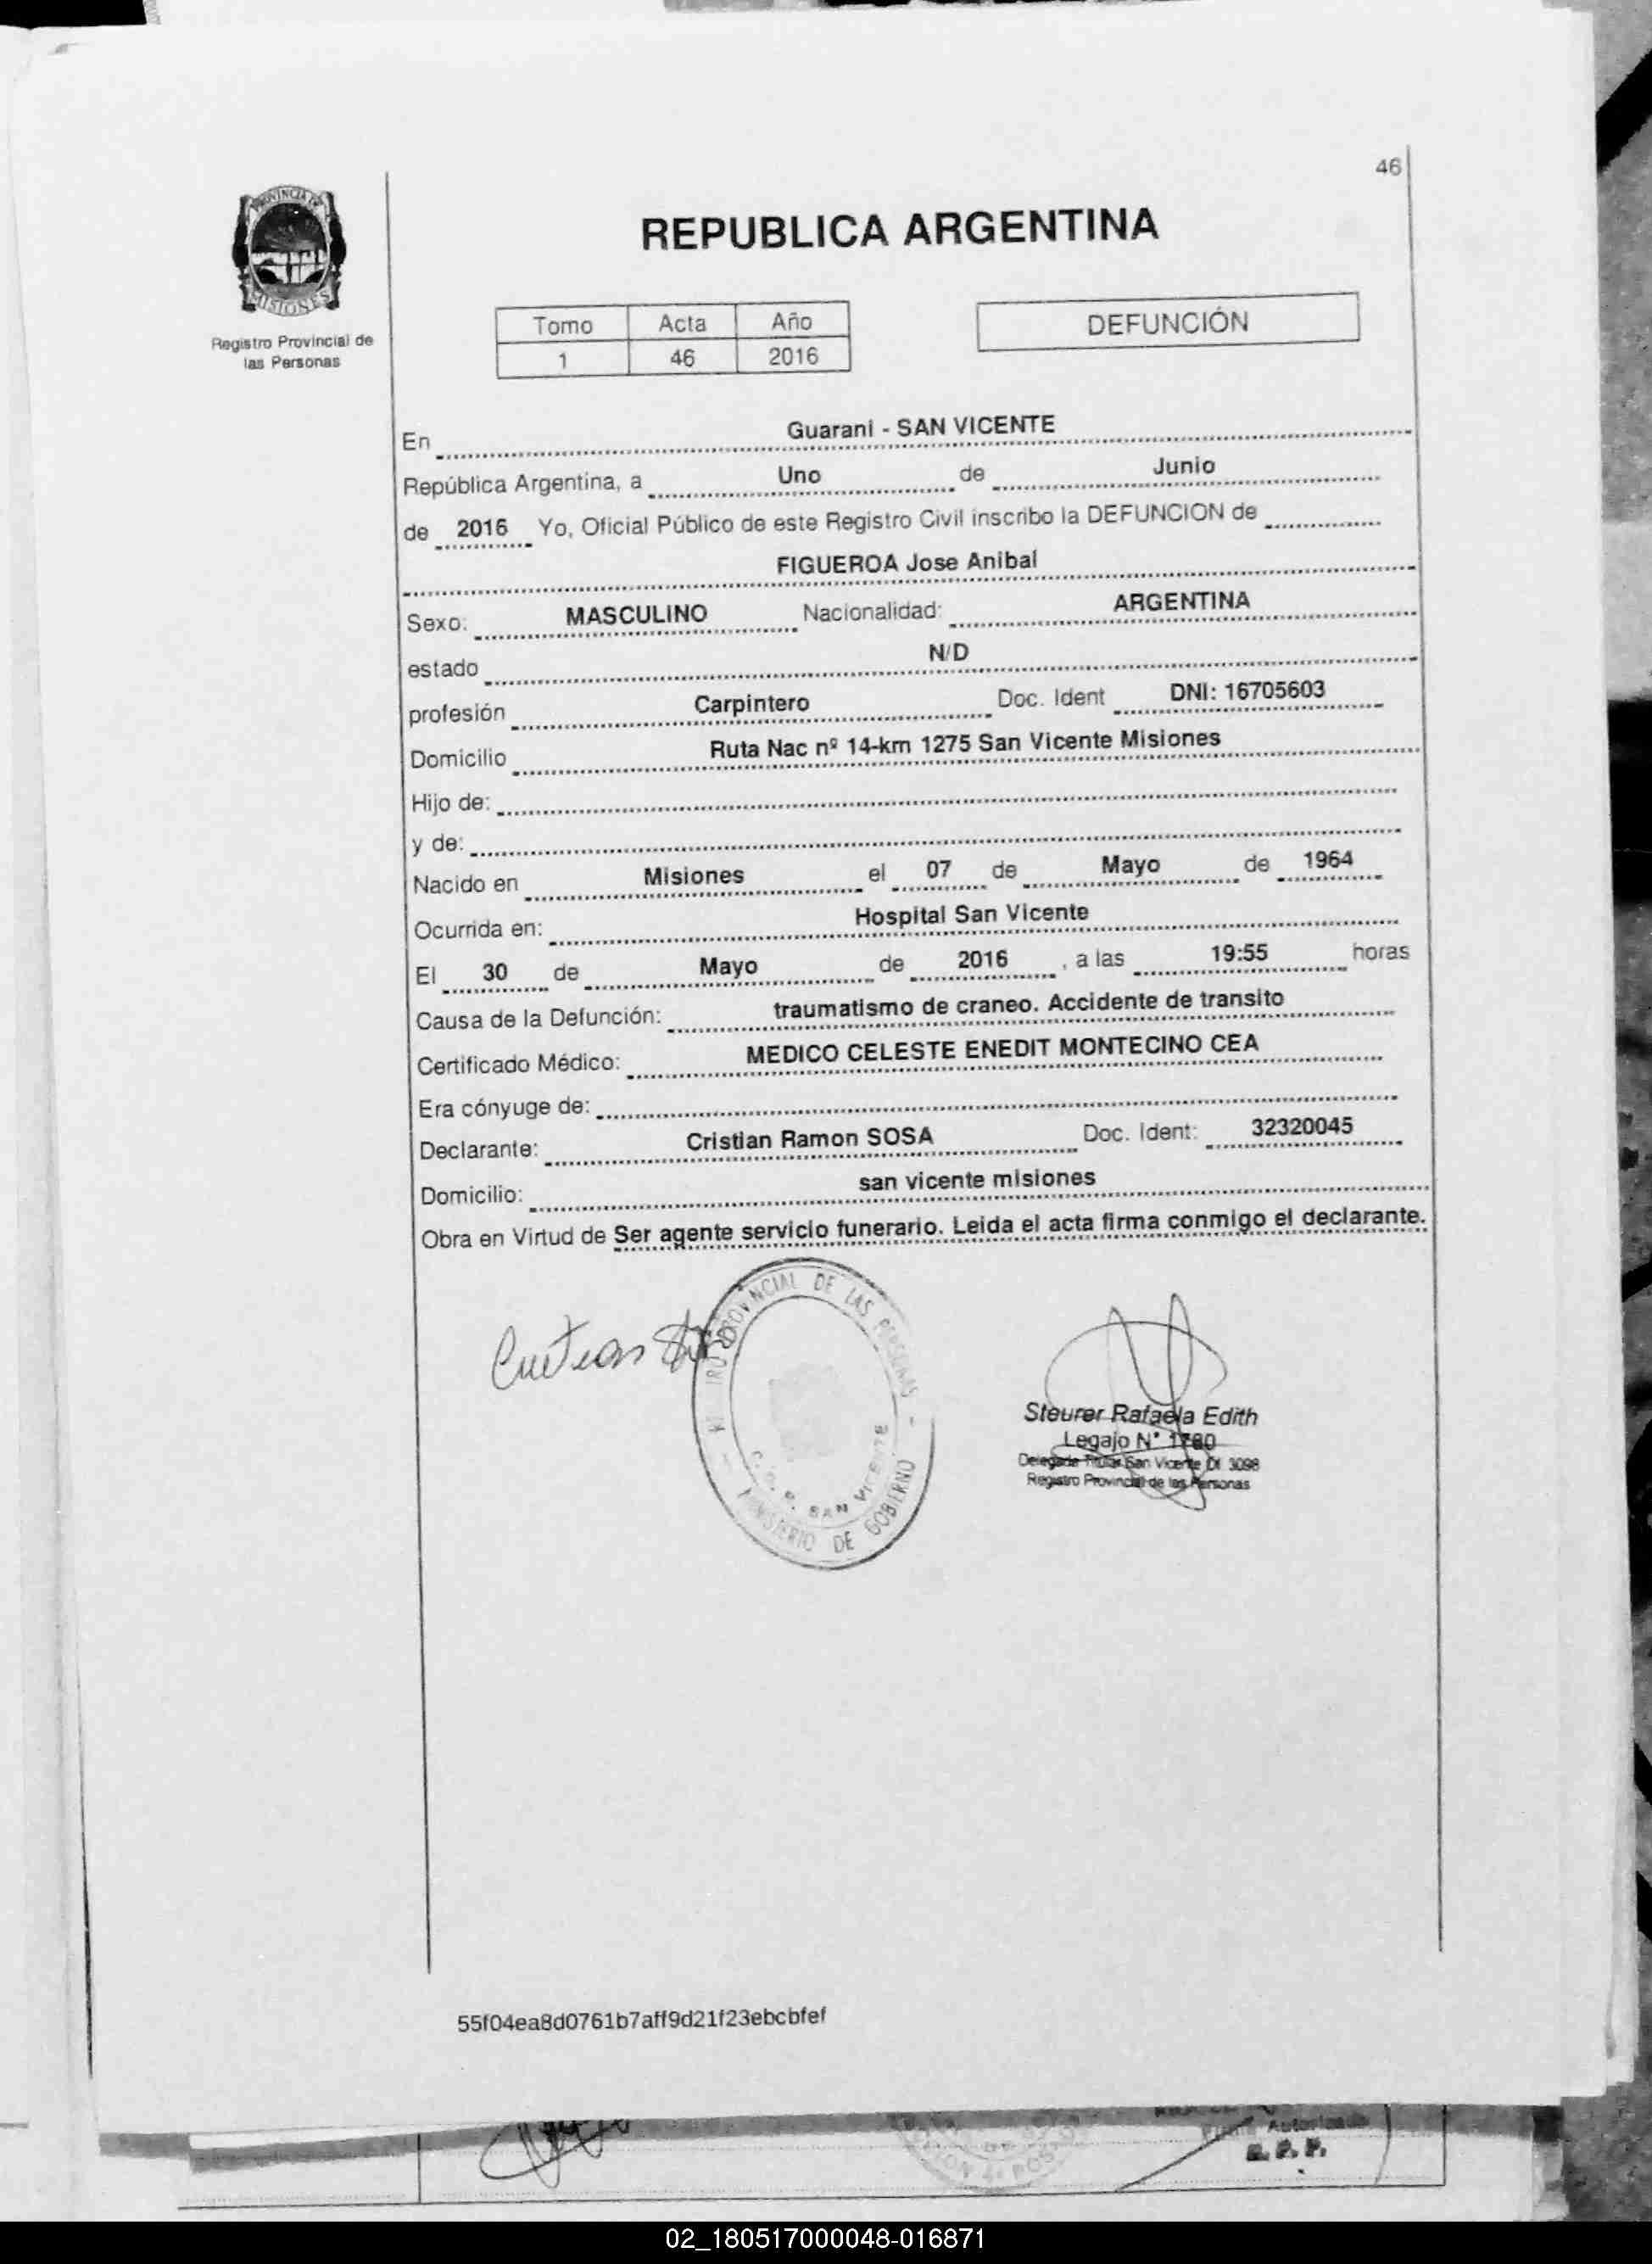 46
PROVINCIA DE
MISIONES
Registro Provincial de
las Personas
REPUBLICA ARGENTINA
Tomo Acta Año
1 46 2016
DEFUNCIÓN
En Guarani - SAN VICENTE
República Argentina, a Uno de Junio
de 2016 Yo, Oficial Público de este Registro Civil inscribo la DEFUNCION de
FIGUEROA Jose Anibal
Sexo: MASCULINO Nacionalidad: ARGENTINA
estado N/D
profesión Carpintero Doc. Ident DNI: 16705603
Domicilio Ruta Nac nº 14-km 1275 San Vicente Misiones
Hijo de:
y de:
Nacido en Misiones el 07 de Mayo de 1964
Ocurrida en: Hospital San Vicente
El 30 de Mayo de 2016 , a las 19:55 horas
Causa de la Defunción: traumatismo de craneo. Accidente de transito
Certificado Médico: MEDICO CELESTE ENEDIT MONTECINO CEA
Era cónyuge de:
Declarante: Cristian Ramon SOSA Doc. Ident: 32320045
Domicilio: san vicente misiones
Obra en Virtud de Ser agente servicio funerario. Leida el acta firma conmigo el declarante.
PROVINCIAL DE LAS PERSONAS
SAN VICENTE
MINISTERIO DE GOBIERNO
Steurer Rafaela Edith
Legajo N° 1780
Delegada Titular San Vicente Of 3098
Registro Provincial de las Personas
55f04ea8d0761b7aff9d21f23ebcbfef
R. P. P.
02_180517000048-016871